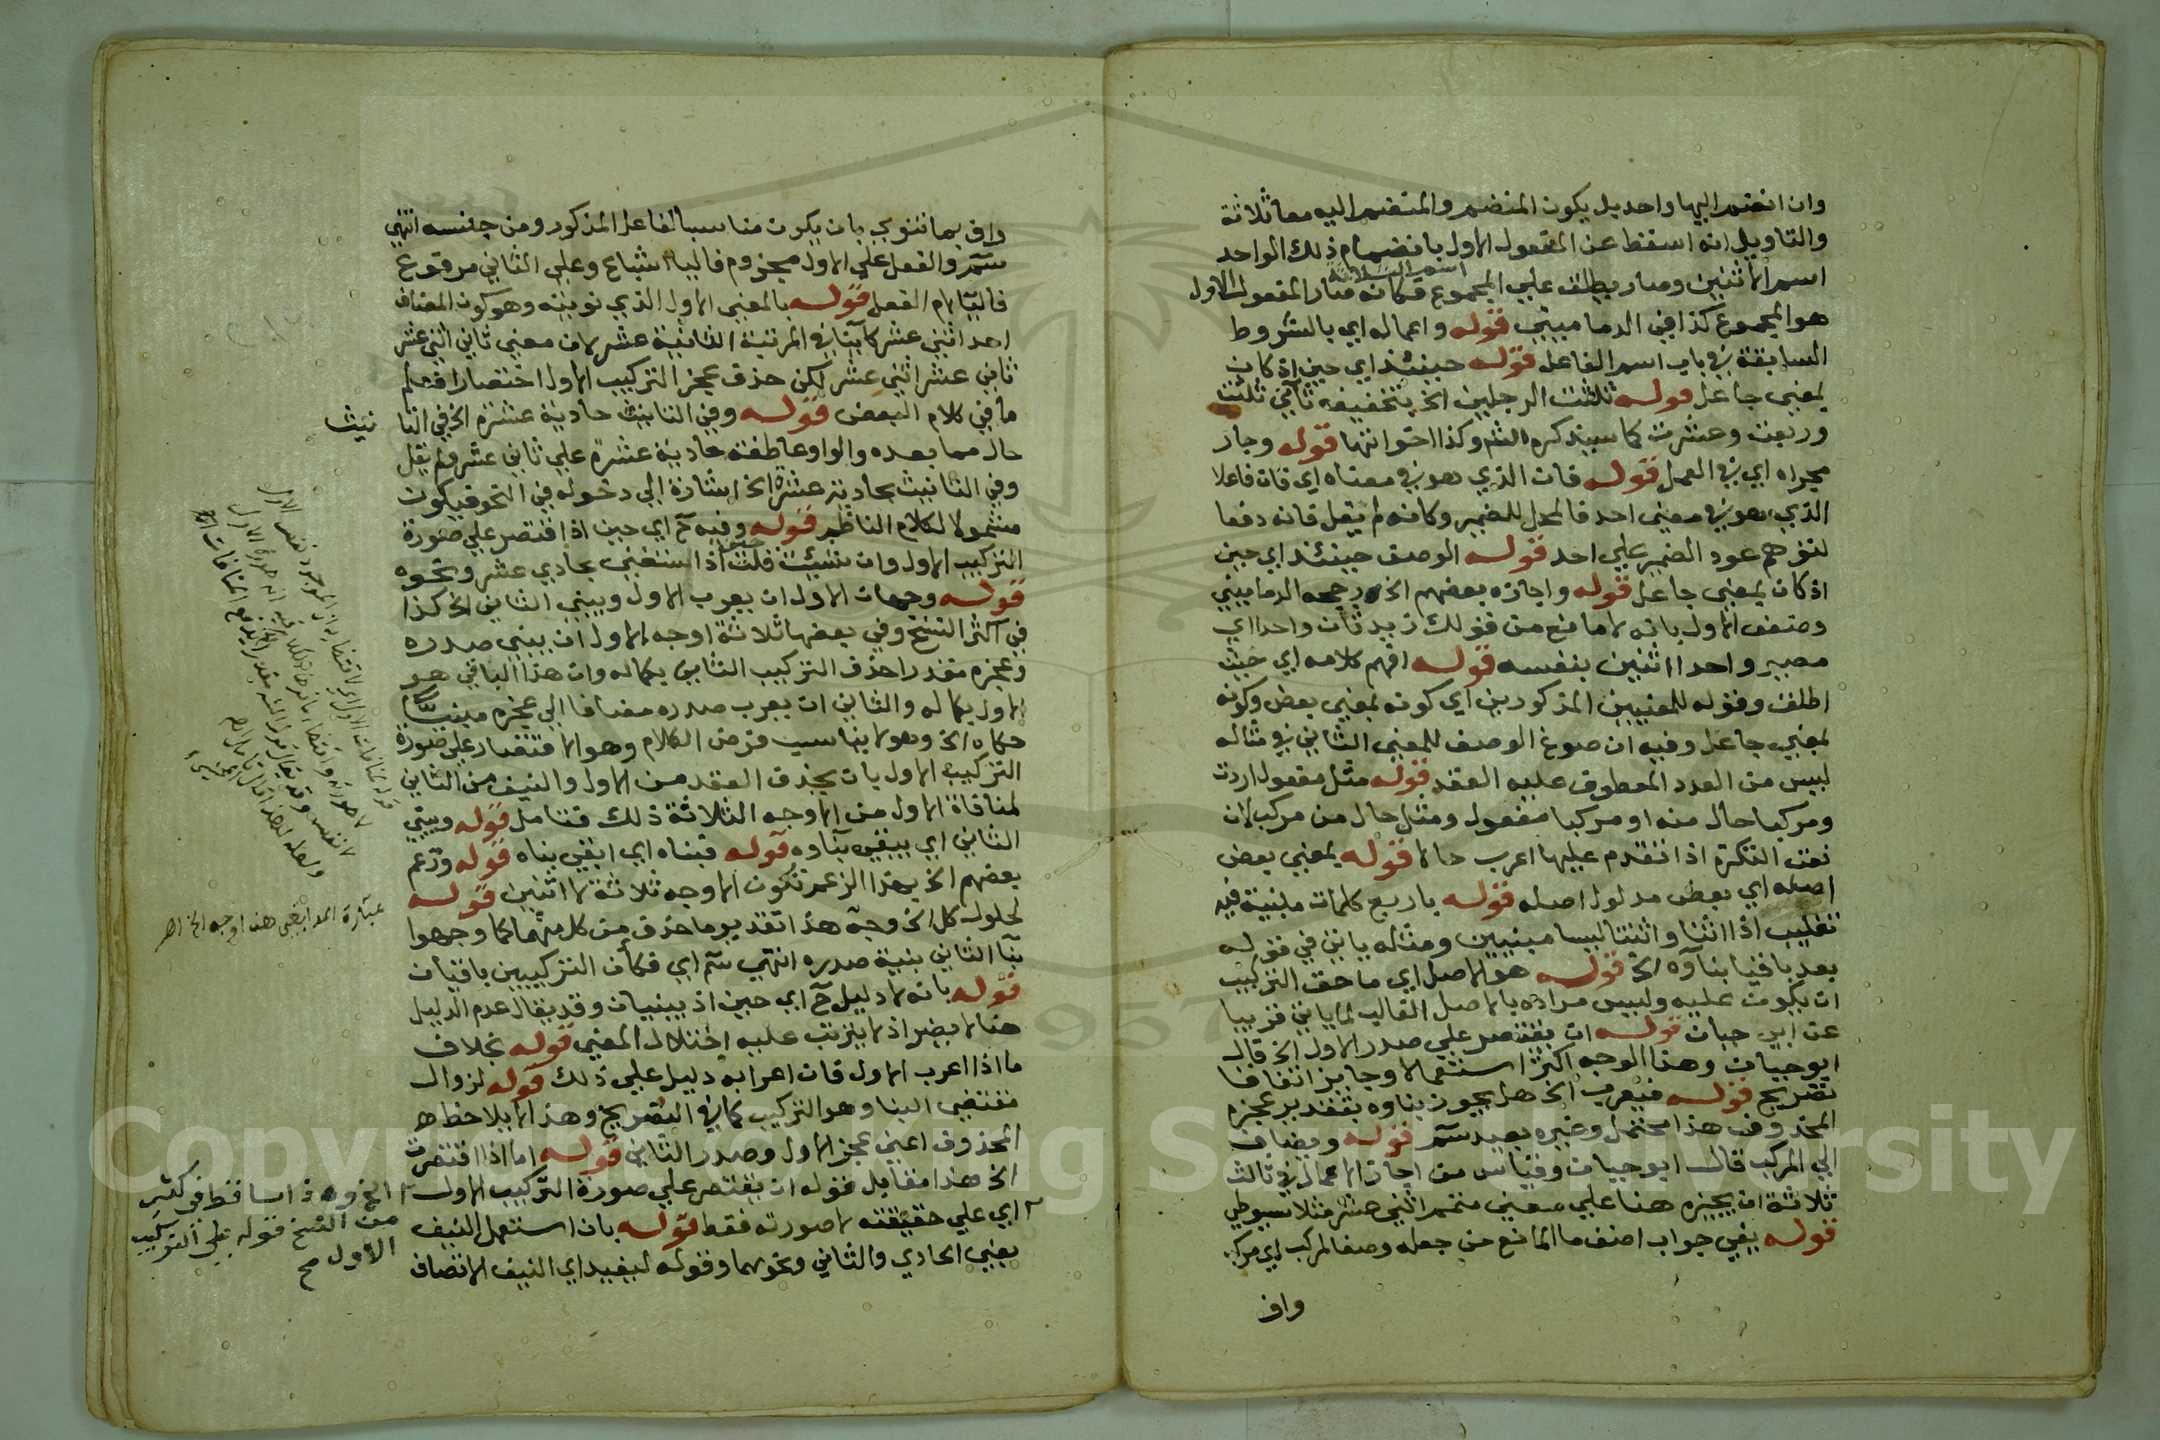 وان انضم اليها واحد بل يكون المنضم والمنضم اليه معا ثلاثة
والتاويل انه اسقط عن المفعول الاول بانضمام ذلك الواحد
اسم الاثنين وصار يطلق علي المجموع اسم الثلاثة فكانه صار المفعول الاول
هو المجموع كذا في الدماميني قوله واعماله اي بالشروط
السابقة في باب اسم الفاعل قوله حينئذ اي حين اذ كان
بمعني جاعل قوله ثلثت الرجلين الخ بتخفيف ثاني ثلثت
وربعت وعشرت كما سيذكره الشم وكذا اخواتها قوله وجار
مجراه اي في العمل قوله فات الذي هو في معناه اي فات فاعلا
الذي هو في معني احد فالمحل للضمير وكانه لم يقل فانه دفعا
لتوهم عود الضمير علي احد قوله الوصف حينئذ اي حين
اذ كان بمعني جاعل قوله واجازه بعضهم الخ رجحه الدماميني
وضعف الاول بانه لا مانع من قولك زيد ثان واحدا اي
مصير واحدا اثنين بنفسه قوله افهم كلامه اي حيث
اطلق وقوله للمعنيين المذكورين اي كونه بمعني بعض وكونه
بمعني جاعل وفيه ان صوغ الوصف للمعني الثاني في مثاله
ليس من العدد المعطوف عليه العقد قوله مثل مفعول اردت
ومركبا حال منه او مركبا مفعول ومثل حال من مركب لان
نعت النكرة اذا تقدم عليها اعرب حالا قوله بمعني بعض
اصله اي بعض مدلول اصله قوله باربع كلمات مبنية فيه
تغليب اذ اثنا واثنتا ليسا مبنيين ومثله ياتي في قوله
بعد باقيا بناؤه الخ قوله هو الاصل اي ما حق التركيب
ان يكون عليه وليس مراده بالاصل الغالب لما ياتي قريبا
عن ابي حيان قوله ان يقتصر علي صدر الاول الخ قال
ابو حيان وهذا الوجه اكثر استعمالا وجايز اتفاقا
تصريح قوله فيعرب الخ هل يجوز بناوه بتقدير عجزه
المحذوف هذا محتمل وغيره بعيد سم قوله ويضاف
الي المركب قال ابو حيان وقياس من اجاز الاعمال في ثالث
ثلاثة ان يجيزه هنا علي معني متمم اثني عشر مثلا سيوطي
قوله بفي جواب اضف ما المانع من جعله وصفا لمركب اي مركب
واف
واف بما تنوي بان يكون مناسبا لفاعل المذكور ومن جنسه انتهي
سم والفعل علي الاول مجزوم فاليا اشباع وعلي الثاني مرفوع
فاليا لام الفعل قوله بالمعني الاول الذي نويته وهو كون المضاف
احد اثني عشر كاينا في المرتبة الثانية عشر لان معني ثاني اثني عشر
ثاني عشر اثني عشر لكن حذف عجز التركيب الاول اختصارا فعلم
ما في كلام البعض قوله وفي التانيث حادية عشرة الخ في التا
نيث
حال مما بعده والواو عاطفة حادية عشرة علي ثاني عشر ولم يقل
وفي التانيث بحادية عشرة الخ اشارة الي دخوله في النحو فيكون
مشمولا لكلام الناظم قوله وفيه ح اي حين اذ اقتصر علي صورة
التركيب الاول وان شئت قلت حين اذ استغني بحادي عشر ونحوه
قوله وجهان الاول ان يعرب الاول ويبني الثاني الخ كذا
في اكثر النسخ وفي بعضها ثلاثة اوجه الاول ان يبني صدره
وعجزه مقدرا حذف التركيب الثاني بكماله وان هذا الباقي هو
الاول بكماله والثاني ان يعرب صدره مضافا الي عجزه مبنيا
حكاه الخ وهو لا يناسب فرض الكلام وهو الاقتصار علي صورة
التركيب الاول بان يحذف العقد من الاول والنيف من الثاني
لمنافاة الاول من الاوجه الثلاثة ذلك فتامل قوله ويبني
الثاني اي يبقي بناوه قوله فبناه اي ابقي بناه قوله وزعم
بعضهم الخ بهذا الزعم تكون الاوجه ثلاثة لا اثنين قوله
لحلول كل الخ وجه هذا تقدير ما حذف من كل منهما كما وجهوا
بنا الثاني بنية صدره انتهي سم اي فكأن التركيبين باقيان
قوله بانه لا دليل ح اي حين اذ يبنيان وقد يقال عدم الدليل
هنا لا يضر اذ لا يترتب عليه اختلال المعني قوله بخلاف
ما اذا اعرب الاول فان اعرابه دليل علي ذلك قوله لزوال
مقتضي البنا وهو التركيب كما في التصريح وهذا لا يلاحظ ه
المحذوف اعني عجز الاول وصدر الثاني قوله اما اذا اقتصرت
الخ هذا مقابل قوله ان يقتصر علي صورة التركيب الاول
اي علي حقيقته لا صورته فقط قوله بان استعمل النيف
يعني الحادي والثاني ونحوهما وقوله ليفيد اي النيف الاتصاف
عبارة المدابغي هذه اوجه الخ اهر
من النسخ قوله علي التركيب
الاول صح